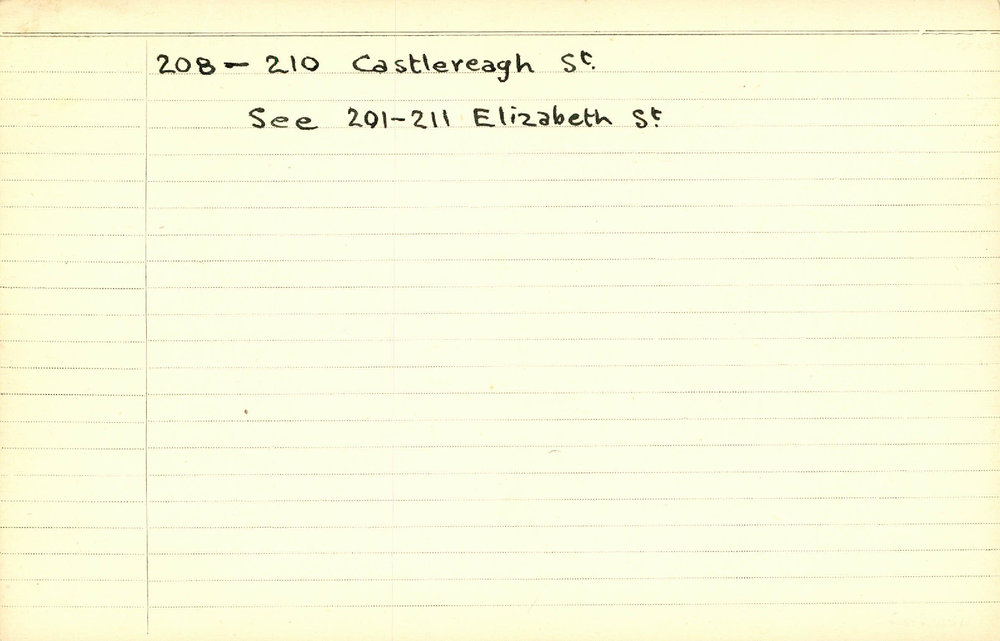 208 - 210 Castlereagh St.
See 201-211 Elizabeth St